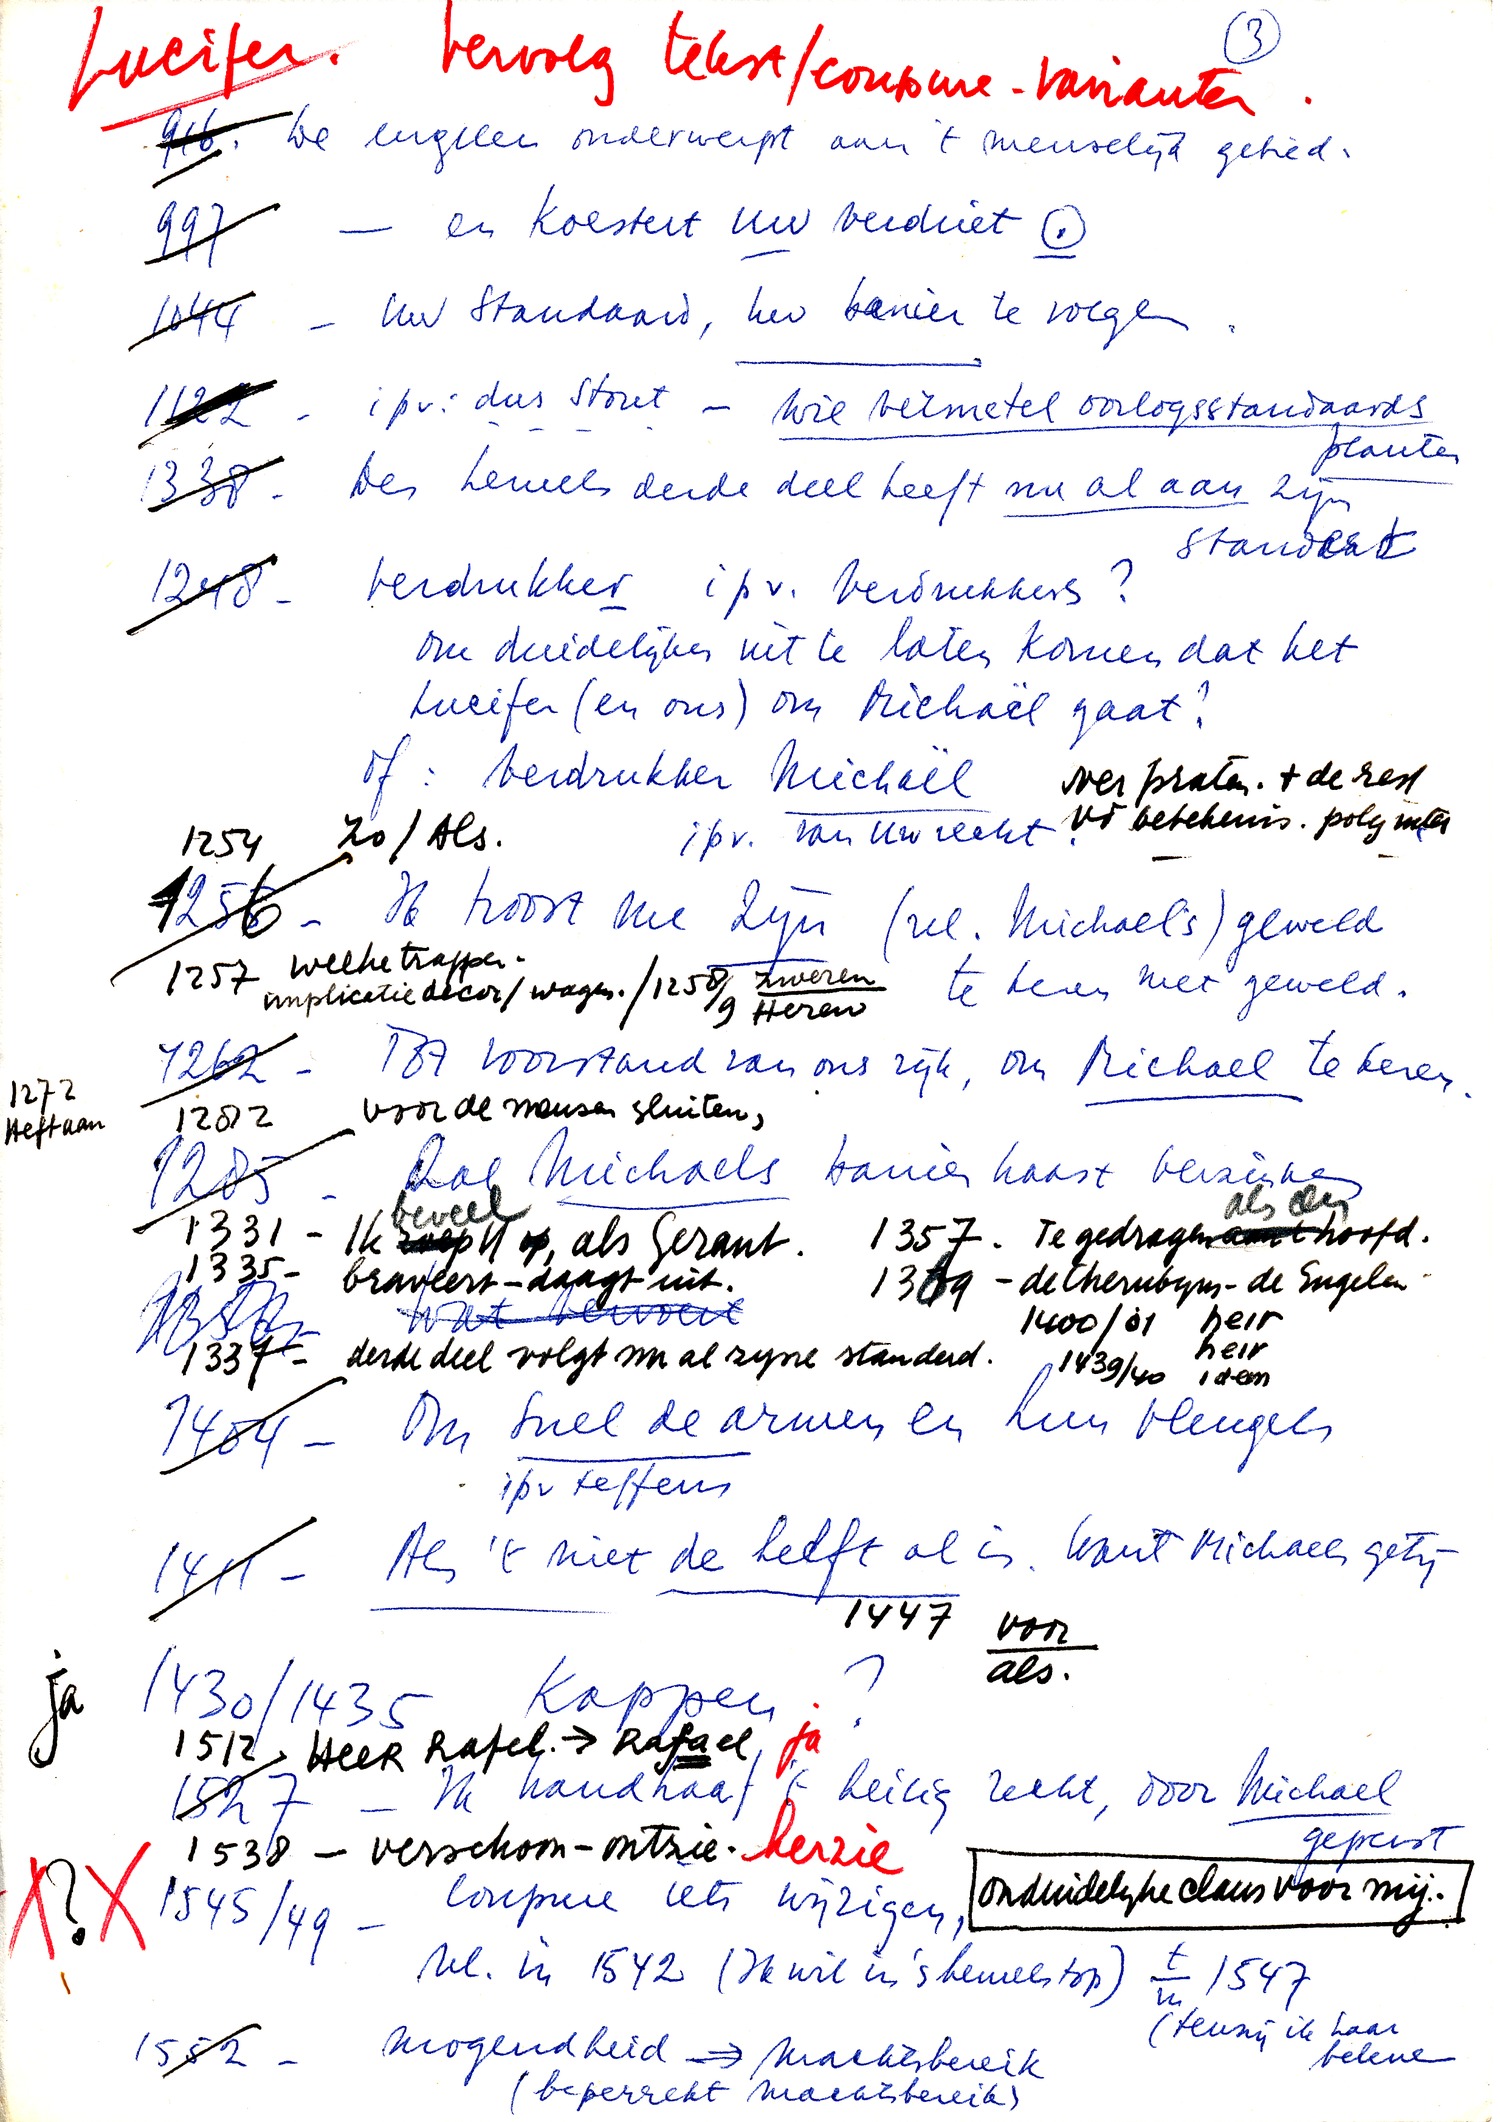 3
Lucifer. Vervolg tekst/coupure-varianten.
916. De engelen onderwerpt aan 't menselijk gebied.
997 — en Koestert uw verdriet .
1044 - Uw Standaard, uw banier te volgen.
1122 - ipv: dus stout - wie vermetel oorlogsstandaards
planten
1338 - Des hemels derde deel heeft nu al aan zijn
standerd
1248 - verdrukker ipv. verdrukkers?
om duidelijker uit te laten komen dat het
Lucifer (en ons) om Michaël gaat?
of: verdrukker Michaël
ipv. van uw recht.
over praten. + de rest
betekenis. polyinter
1254 Zo/Als.
1256 - Ik troost me zijn (nl. Michaels) geweld
te keren met geweld.
1257 welke trappen.
implicatie decor/wagen. / 1258/9 zweren
Heren
1262 - Tot voorstand van ons rijk, om Michael te keren.
1272
Heft aan
1282 voor de mensen sluiten,
1285 - Zal Michaels banier haast verzinken
1331 - Ik roep U op, als Gerant.
beveel
1335 - braveert - daagt uit.
wat vervoert
1337 - derde deel volgt nu al zijne standerd.
1357. Te gedragen aan 't hoofd.
als een
1369 - de Cherubijns - de Engelen
1400/01 heir
heir
1439/40 idem
1404 - Om snel de armen en hun vleugels
ipv teffens
1411 - Als 't niet de helft al is. Want Michaels getij
1447 voor
als.
ja 1430/1435 Kappen?
1512. HEER Rafel. → Rafael, ja
1527 - Ik handhaaf 't heilig recht, door Michael
geperst
1538 - verschoon - ontzie. herzie
X?X 1545/49 - Coupure iets wijzigen,
onduidelijke claus voor mij.
nl. in 1542 (Ik wil in 's hemels top) t/m 1547
(tenzij ik haar
bekene
1552 - mogendheid → machtsbereik
(beperrekt machtsbereik)